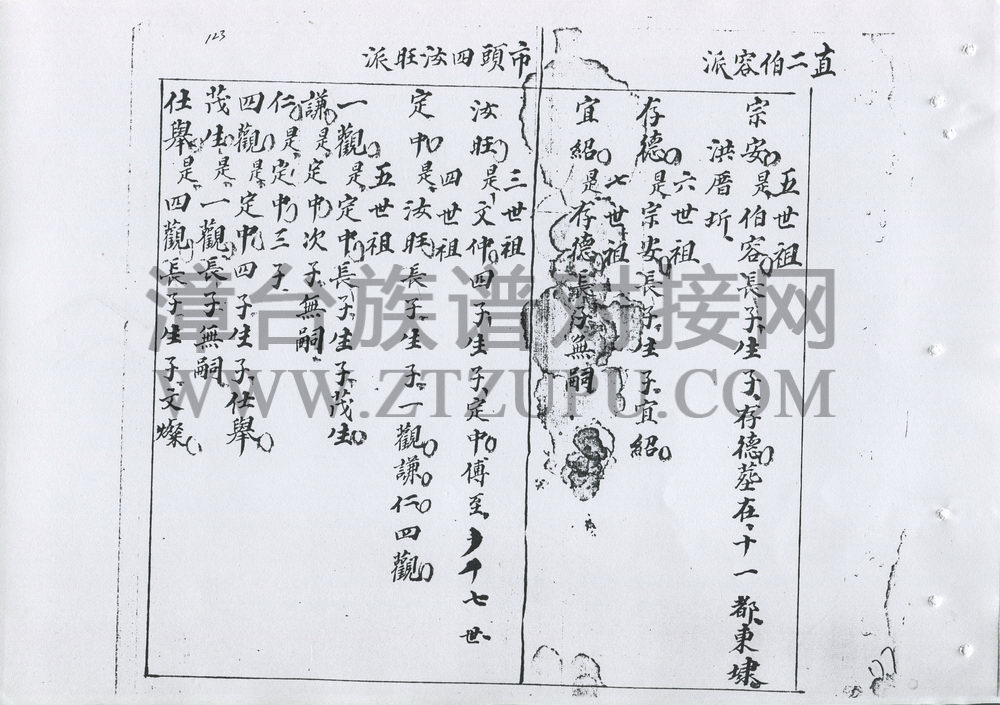 直二伯容派
五世祖
宗安是伯容長子生子存德塟在十一都東埭
洪厝坵
六世祖
存德是宗安長子生子宜紹
七世祖
宜紹是存德長子無嗣
市頭四汝旺派
三世祖
汝旺是文仲四子生子定中傅至十七世
四世祖
定中是汝旺長子生子一觀謙仁四觀
五世祖
一觀是定中長子生子茂生
謙是定中次子無嗣
仁是定中三子
四觀是定中四子生子仕舉
茂生是一觀長子無嗣
仕舉是四觀長子生子文燦
123
漳台族谱对接网
WWW.ZTZUPU.COM